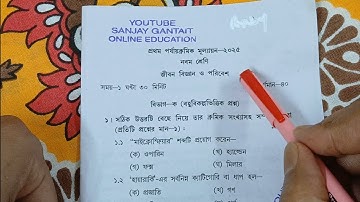 YOUTUBE
SANJAY GANTAIT
ONLINE EDUCATION
প্রথম পর্যায়ক্রমিক মূল্যায়ন—২০২৫
নবম শ্রেণি
জীবন বিজ্ঞান ও পরিবেশ
সময়—১ ঘন্টা ৩০ মিনিট
মান—৪০
বিভাগ—ক (বহুবিকল্পভিত্তিক প্রশ্ন)
১। সঠিক উত্তরটি বেছে নিয়ে তার ক্রমিক সংখ্যাসহ
(প্রতিটি প্রশ্নের মান—১) :
১.১ "মাইক্রোস্ফিয়ার" শব্দটি প্রয়োগ করেন—
(ক) ওপারিন (খ) হ্যালডেন
(গ) ফক্স (ঘ) মিলার
১.২ 'হায়ারার্কি'-এর সর্বনিম্ন ক্যাটিগোরি বা ধাপ হল—
(ক) প্রজাতি (খ) গণ